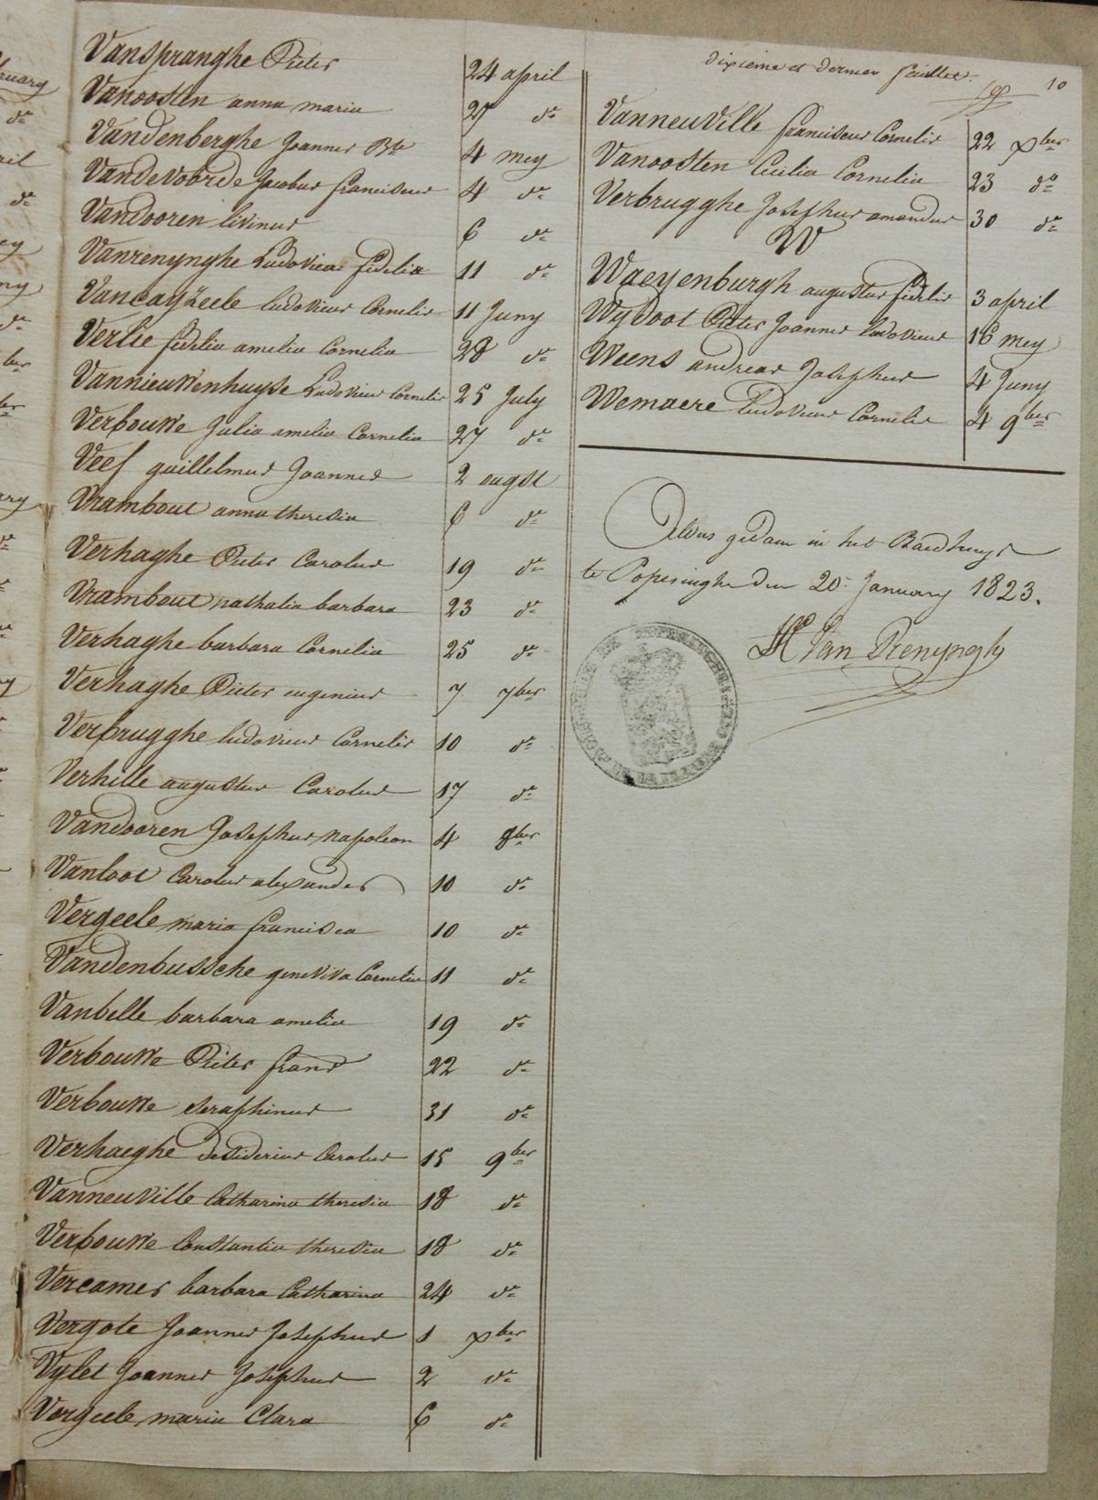 Vanspranghe Pieter 24 april
Vanoosten anna maria 27 do
Vandenberghe Joannes Bte 4 mey
Vandevoorde Jacobus franciscus 4 do
Vandooren livinus 6 do
Vanrenynghe Ludovica fidelia 11 do
Vancayzeele ludovicus Cornelis 11 Juny
Verlie fidelia amelia Cornelia 28 do
Vannieuwenhuyse Ludovicus Cornelis 25 July
Verbouwe Julia amelia Cornelia 27 do
Veef guillelmus Joannes 2 augst
Vrambout anna theresia 6 do
Verhaghe Pieter Carolus 19 do
Vrambout nathalia barbara 23 do
Verhaghe barbara Cornelia 25 do
Verhaghe Pieter eugenius 7 7ber
Verbrugghe ludovicus Cornelis 10 do
Verhille augustus Carolus 17 do
Vandooren Josephus napoleon 4 8ber
Vanloot Carolus alexander 10 do
Vergeele maria francisca 10 do
Vandenbussche geneviva Cornelia 11 do
Vanbelle barbara amelia 19 do
Verbouwe Pieter frans 22 do
Verbouwe Seraphinus 31 do
Verhaeghe desiderius Carolus 15 9ber
Vanneuville Catharina theresia 18 do
Verbouwe Constantia theresia 18 do
Vercamer barbara Catharina 24 do
Vergote Joannes Josephus 1 xber
Vylet Joannes Josephus 2 do
Vergeele maria Clara 6 do
dixieme et dernier feuillet. 10
Vanneuville franciscus Cornelis 22 xber
Vanoosten Cecilia Cornelia 23 do
Verbrugghe Josephus amandus 30 do
W
Waeyenburgh augustus fidelis 3 april
Wydoot Pieter Joannes ludovicus 16 mey
Weens andreas Josephus 4 Juny
Wemaere ludovicus Cornelis 4 9ber
Aldus gedaen in het Raedhuys
te Poperinghe den 20 January 1823.
Van Renynghe